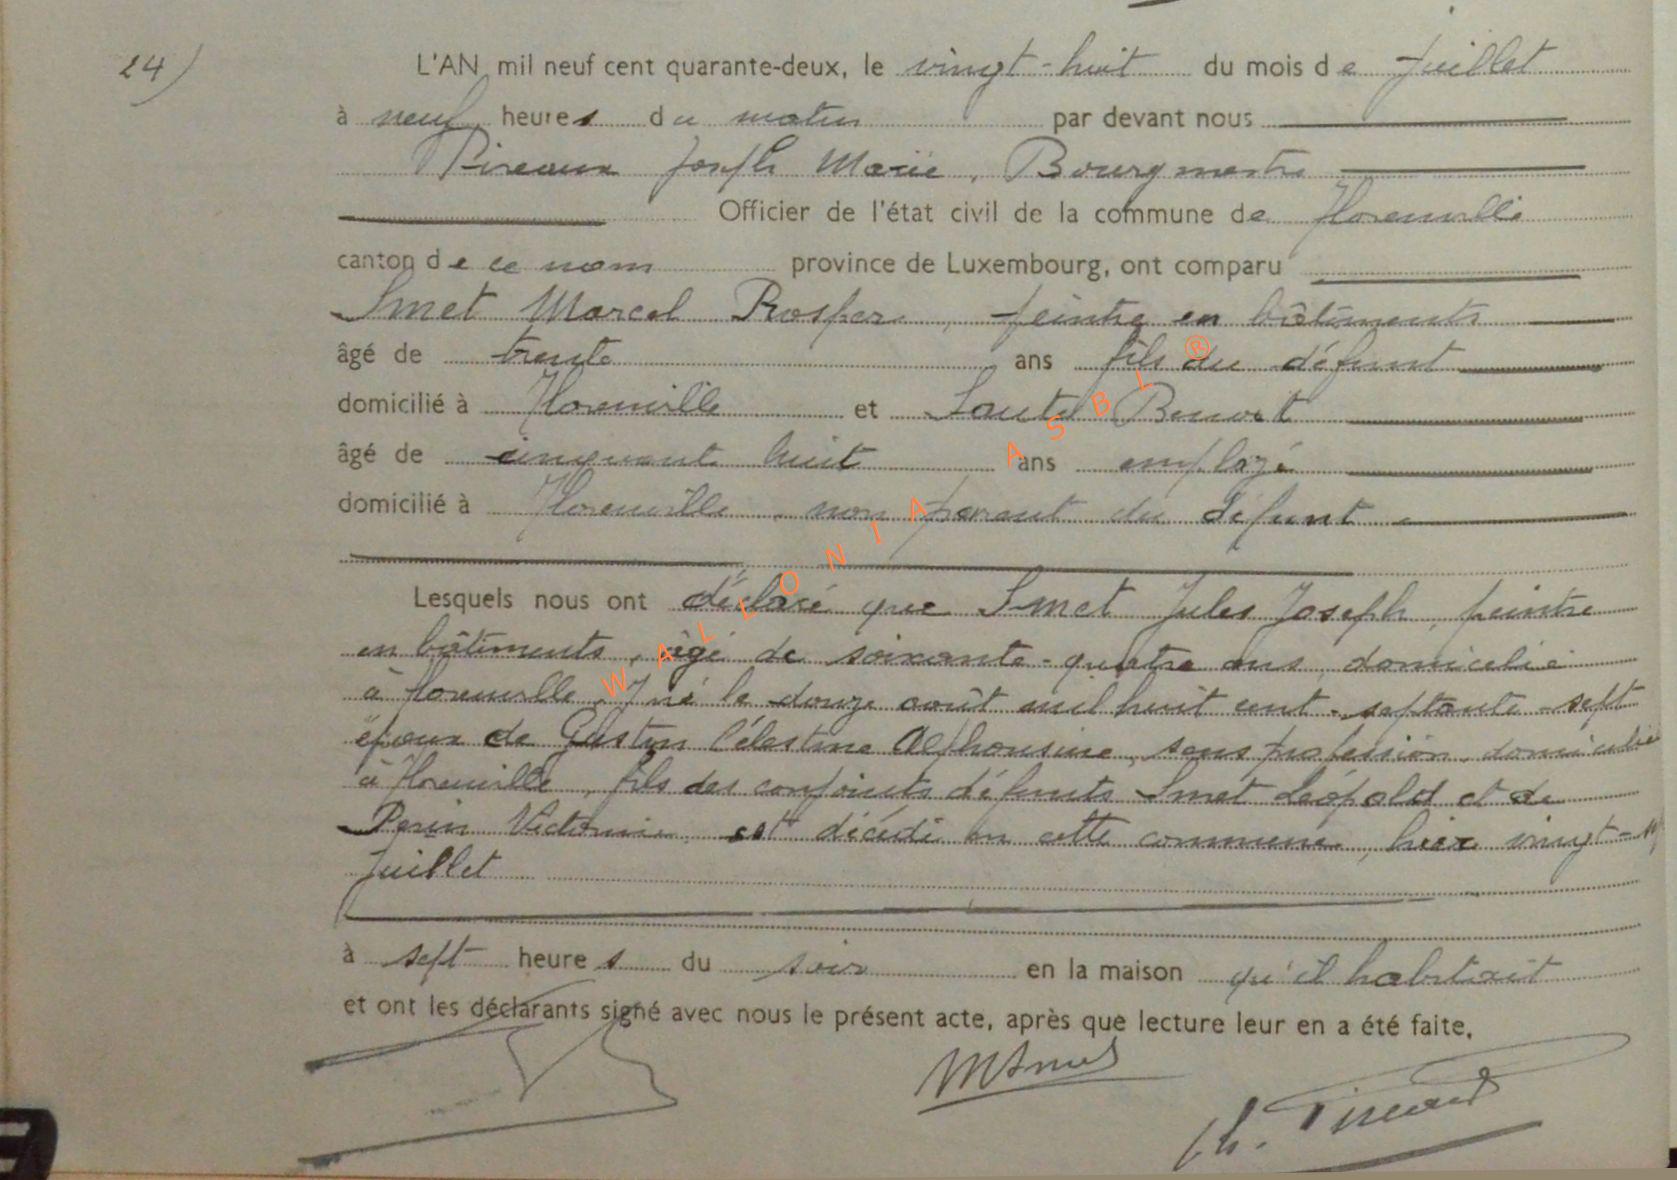 24)
L'AN mil neuf cent quarante-deux, le vingt-huit du mois de Juillet
à neuf heures du matin par devant nous
Pireaux Joseph Marie, Bourgmestre
Officier de l'état civil de la commune de Florenville
canton de ce nom province de Luxembourg, ont comparu
Smet Marcel Prosper, peintre en bâtiments
âgé de trente ans fils du défunt
domicilié à Florenville et Benoit
âgé de cinquante huit ans employé
domicilié à Florenville, non parent du défunt
Lesquels nous ont déclaré que Smet Jules Joseph, peintre
en bâtiments, âgé de soixante-quatre ans, domicilié
à Florenville, né le douze août mil huit cent septante-sept
époux de Gustin Célestine Alphonsine, sans profession, domiciliée
à Florenville, fils des conjoints défunts Smet Léopold et de
Perin Victorine est décédé en cette commune, hier vingt-
Juillet
à sept heures du soir en la maison qu'il habitait
et ont les déclarants signé avec nous le présent acte, après que lecture leur en a été faite.
MSmet
WALLONIA ASBL ®